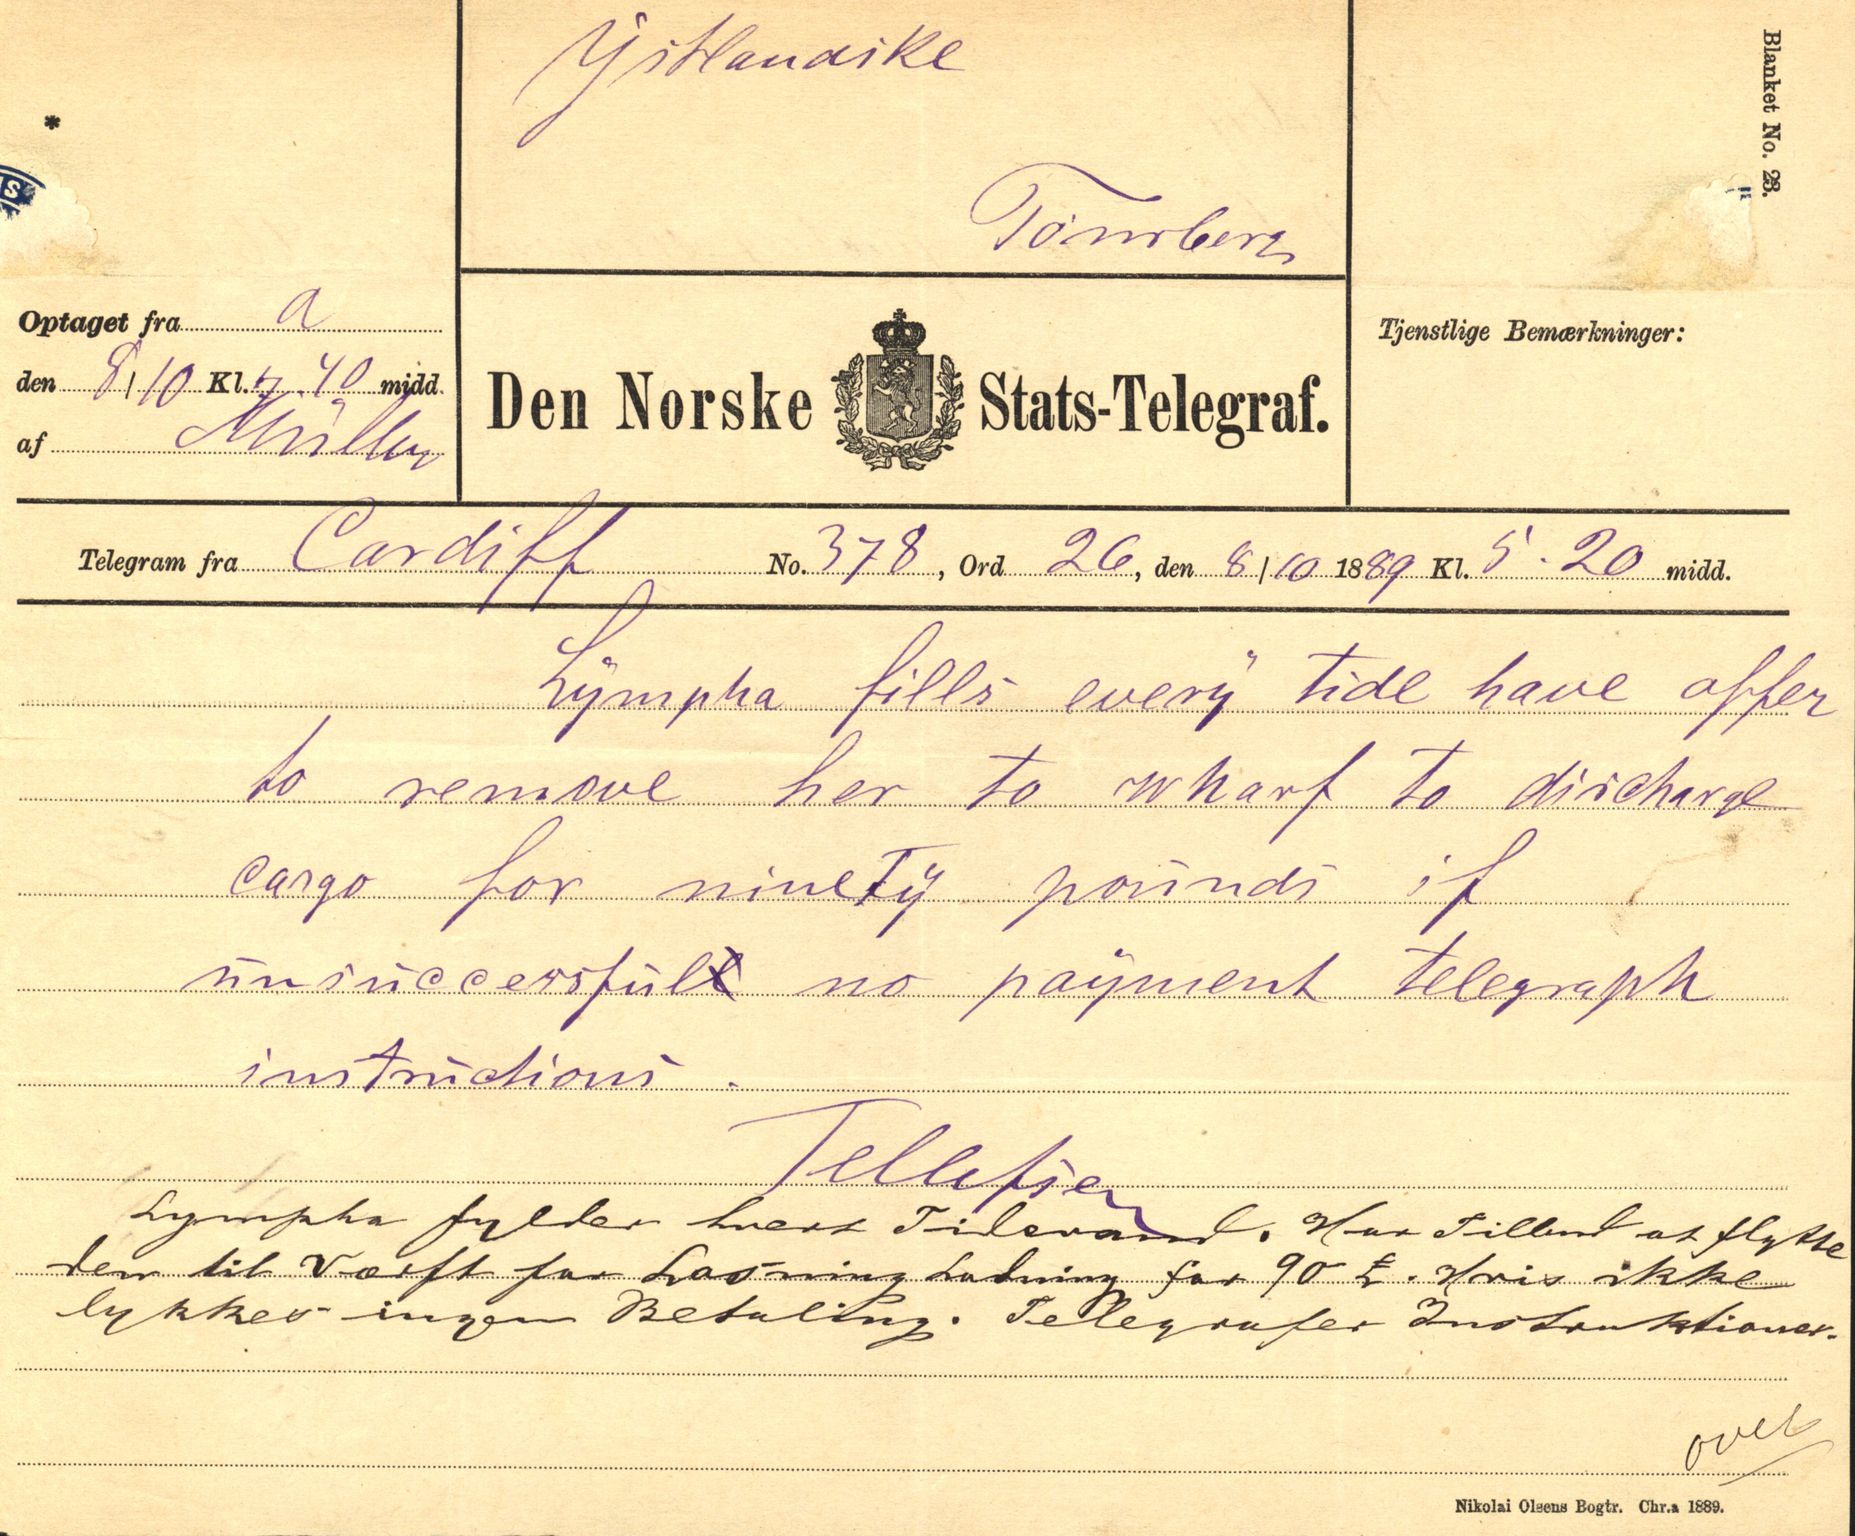 Ijshandske
Tönsberg
Blanket No. 23.
*
Optaget fra a
den 8/10 Kl. 7.40 midd.
af Müller
Den Norske Stats-Telegraf.
Tjenstlige Bemærkninger:
Telegram fra Cardiff No. 378, Ord 26, den 8/10 1889 Kl. 5.20 midd.
Lympha fills every tide have offer
to remove her to wharf to discharge
cargo for ninety pounds if
unsuccessful no payment telegraph
instructions.
Tellefsen
Lympha fylder hvert Tidevand. Har Tilbud at flytte
den til Værft for Losning Ladning for 90 £. Hvis ikke
lykkes ingen Betaling. Telegrafer Instruktioner.
over
Nikolai Olsens Bogtr. Chr.a 1889.